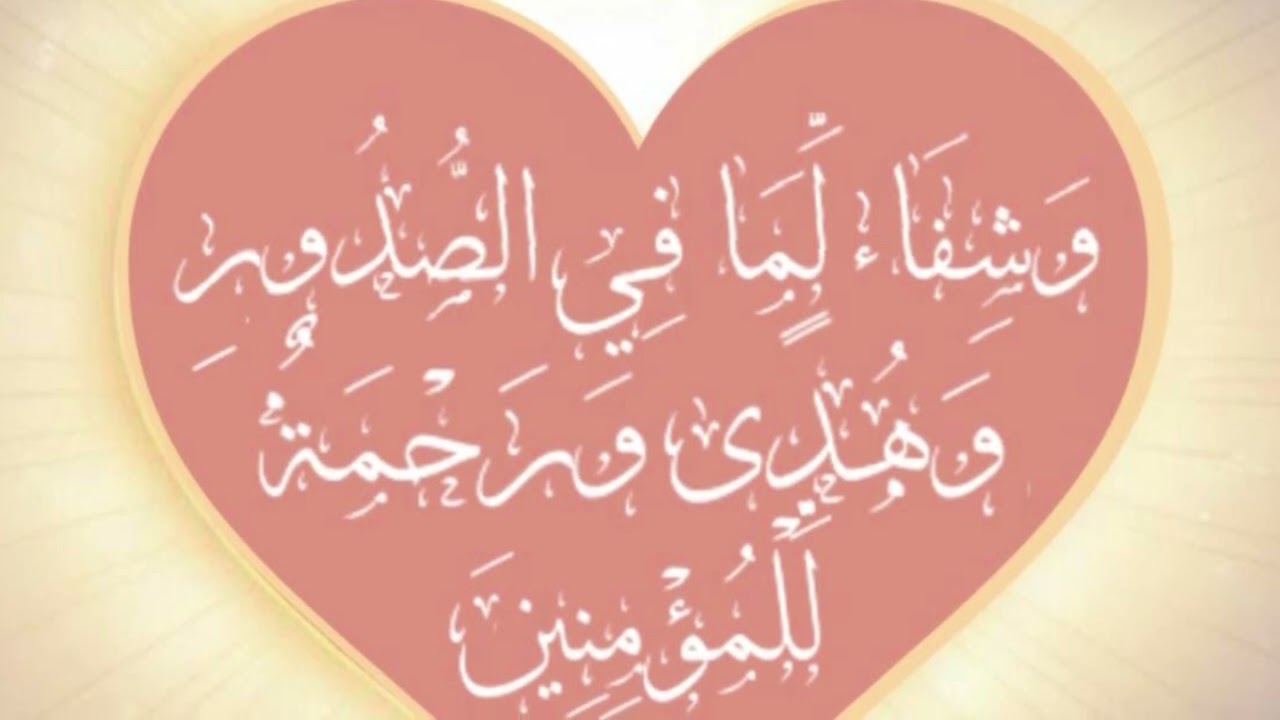 وَشِفَاء لِّمَا فِي الصُّدُورِ
وَهُدى وَرَحْمَةٌ
لِّلْمُؤْمِنِينَ